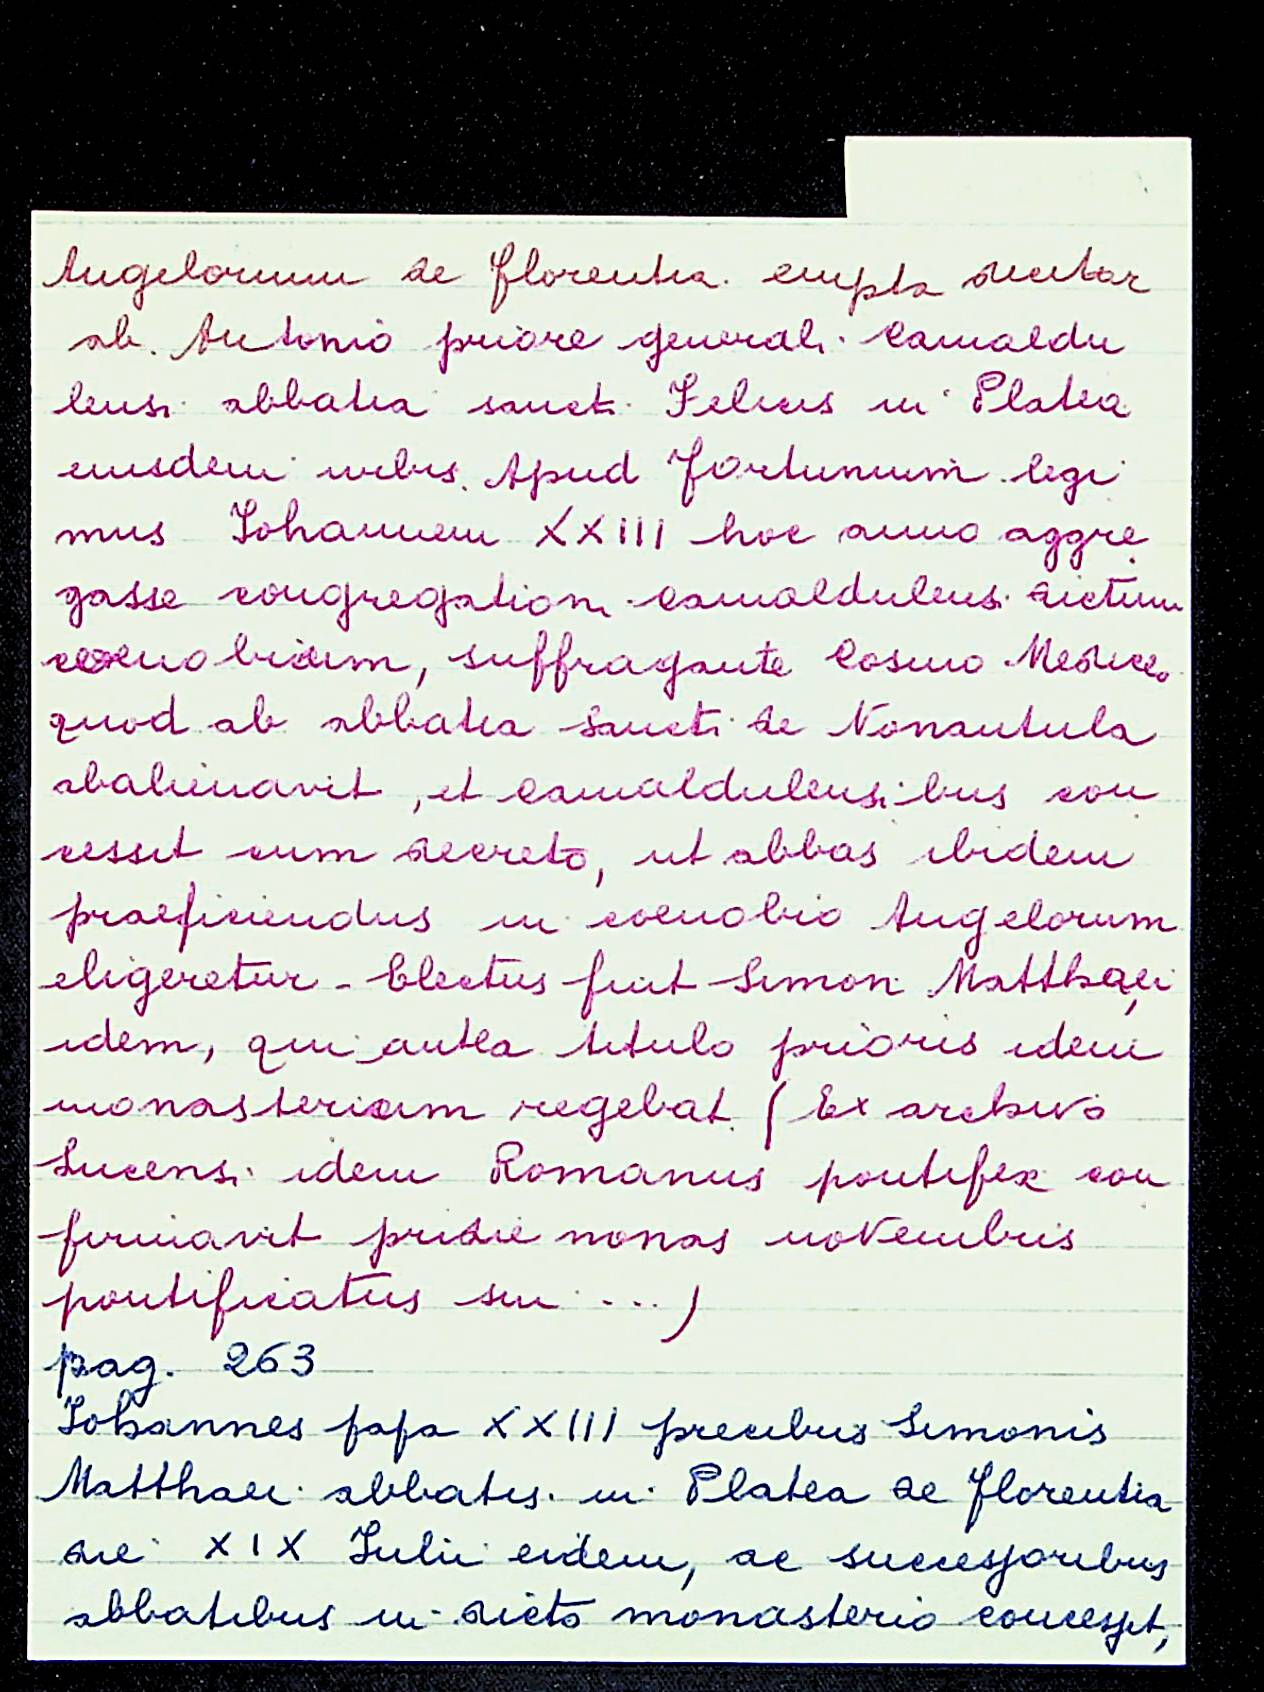 Angelorum de Florentia. empta dicitur
ab. Antonio priore generali. Camaldu
lensi abbatia sancti Felicis in Platea
eiusdem urbis. Apud Fortunium legi
mus Iohannem XXIII hoc anno aggre
gasse congregationi camaldulensi dictum
coenobium, suffragante Cosmo Mediceo
quod ab abbatia Sancti de Nonantula
abalienavit, et Camaldulensibus con
cessit cum decreto, ut abbas ibidem
praeficiendus in coenobio Angelorum
eligeretur - Electus fuit Simon Matthaei,
idem, qui antea titulo prioris idem
monasterium regebat. (Ex archivo
Lucensi idem Romanus pontifex con
firmavit pridie nonas novembris
pontificatus sui ...)
pag. 263
Iohannes papa XXIII precibus Simonis
Matthaei abbatis. in Platea de Florentia
die XIX Iulii eidem, ac successoribus
abbatibus in dicto monasterio concessit,